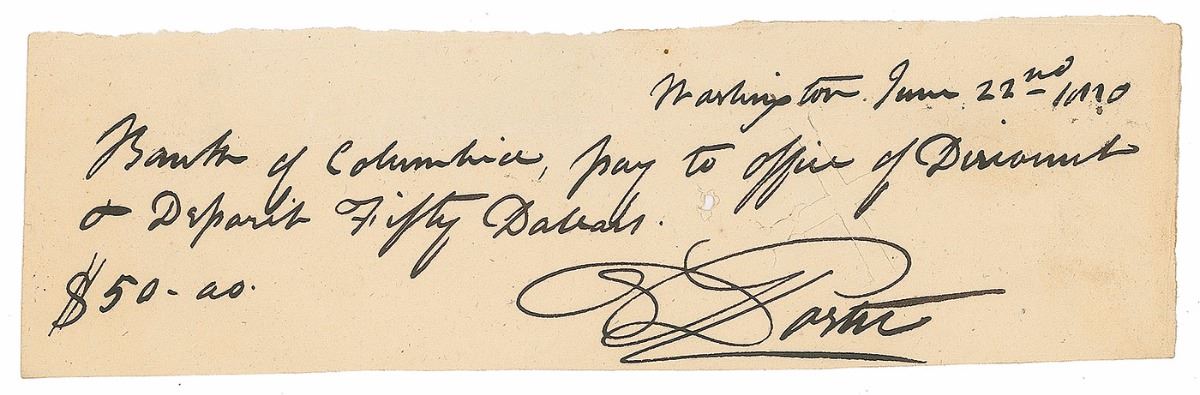 Washington June 22nd 1820
Bank of Columbia, pay to office of Discount
& Deposit Fifty Dollars.
$50-00.
D Porter